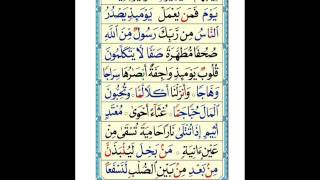 يَوْمَ ۞ فَمَنْ يَعْمَلْ ۞ يَوْمَئِذٍ يَصْدُرُ
النَّاسُ ۞ مِنْ رَبِّكَ ۞ رَسُولٌ مِنَ اللَّهِ
صُحُفًا مُطَهَّرَةً ۞ صَفًّا لَا يَتَكَلَّمُونَ
قُلُوبٌ يَوْمَئِذٍ وَاجِفَةٌ ۞ أَبْصَارُهَا ۞ سِرَاجًا
وَهَّاجًا ۞ وَأَنْزَلْنَا ۞ أَكْلًا لَمًّا ۞ وَتُحِبُّونَ
الْمَالَ حُبًّا جَمًّا ۞ غُثَاءً أَحْوَى ۞ مُعْتَدٍ
أَثِيمٍ إِذَا تُتْلَى ۞ نَارًا حَامِيَةً تُسْقَى مِنْ
عَيْنٍ آنِيَةٍ ۞ مَنْ بَخِلَ ۞ لَيُنْبَذَنَّ
مِنْ بَعْدِ ۞ مِنْ بَيْنِ الصُّلْبِ ۞ لَنَسْفَعًا